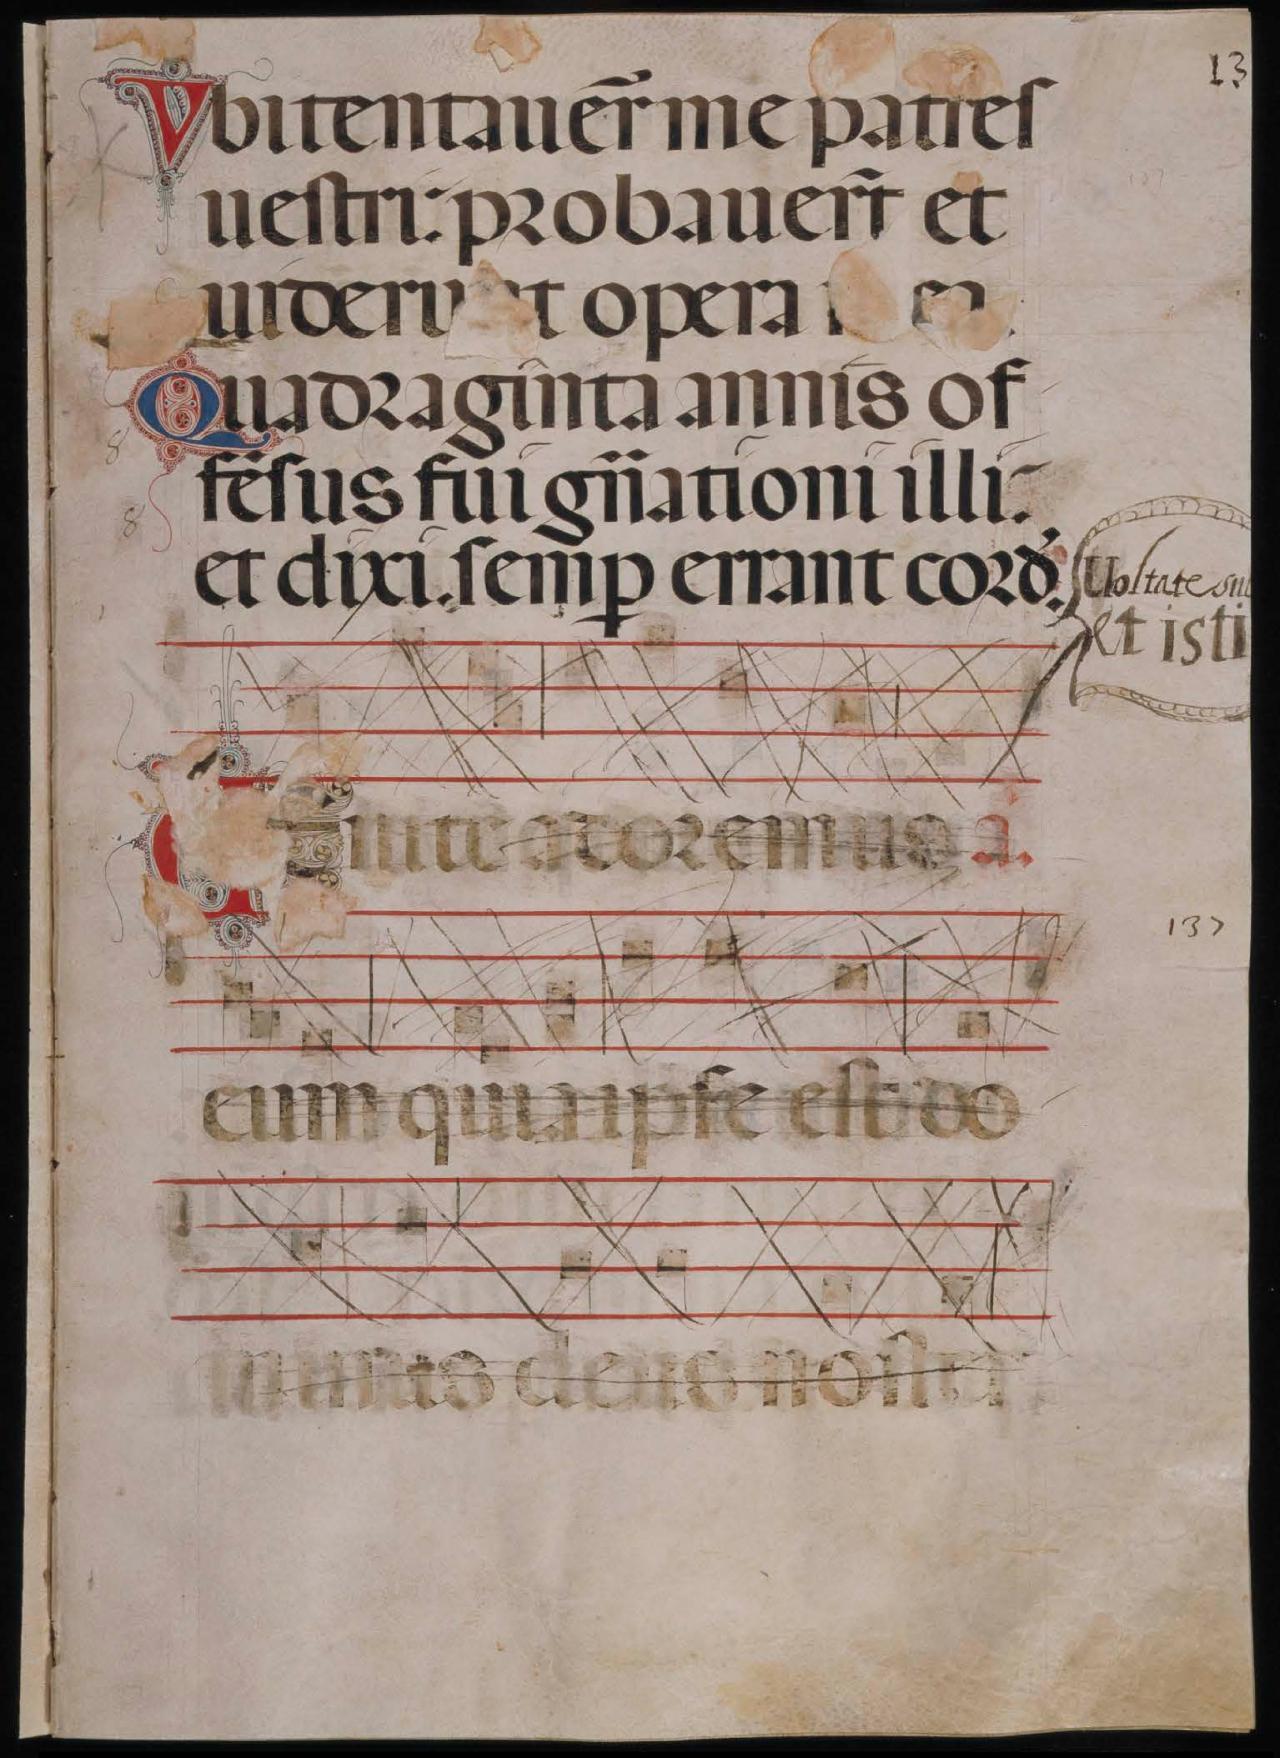 13
Vbi tentauer̄ me patres
uestri: probauer̄t et
uiderunt opera mea.
Quadraginta annis of
fēsus fui gn̄ationi illi:
et dixi. semꝑ errant cord̉.
Uoltate
et isti
Uenite adoremus a.
137
eum quia ipse est do
minus deus noster